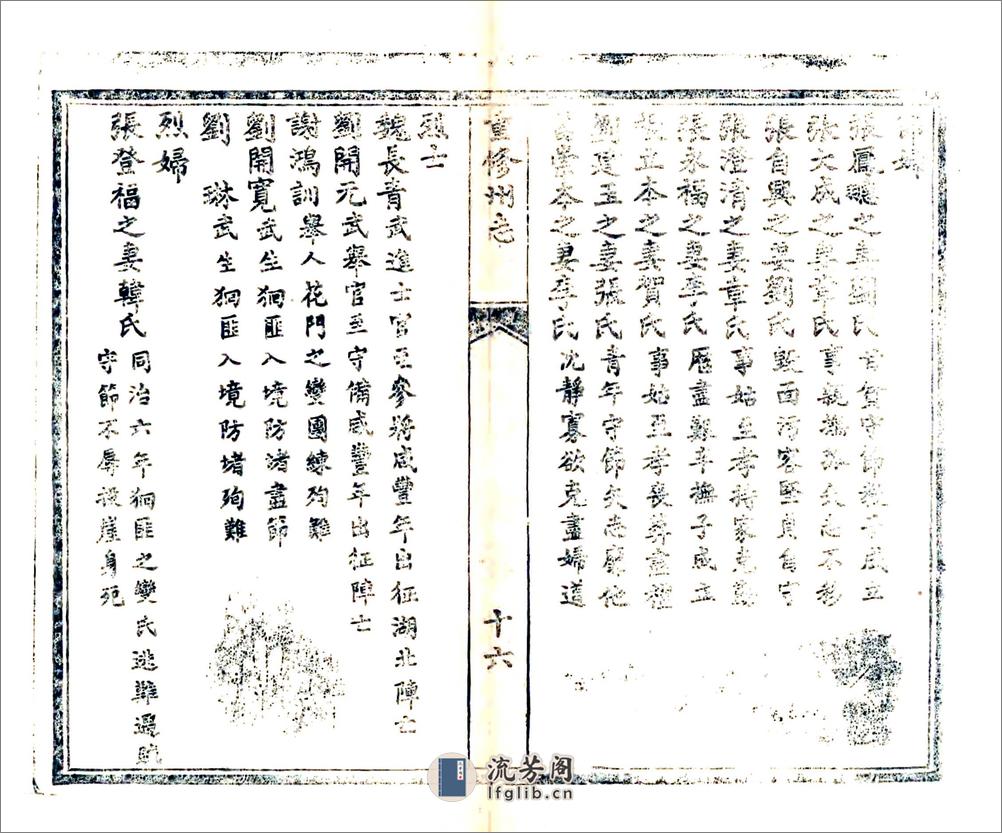 節婦
張鳳聰之妻劉氏 守節教子成立
張大成之妻韋氏 事親撫孤矢志不移
張自興之妻劉氏 毀面污容堅貞自守
張澄清之妻韋氏 事姑至孝持家克勤
張永福之妻李氏 歷盡艱辛撫子成立
立本之妻賀氏 事姑至孝喪葬盡禮
劉建玉之妻張氏 青年守節矢志靡他
榮本之妻李氏 沈靜寡欲克盡婦道
重修州志
十六
烈士
魏長青 武進士官至參將咸豐年出征湖北陣亡
劉開元 武舉官至守備咸豐年出征陣亡
謝鴻訓 舉人花門之變團練殉難
劉開寬 武生狪匪入境防堵盡節
劉 琳 武生狪匪入境防堵殉難
烈婦
張登福之妻韓氏 同治六年狪匪之變氏逃難遇賊
守節不辱投崖身死
流芳阁
lfglib.cn